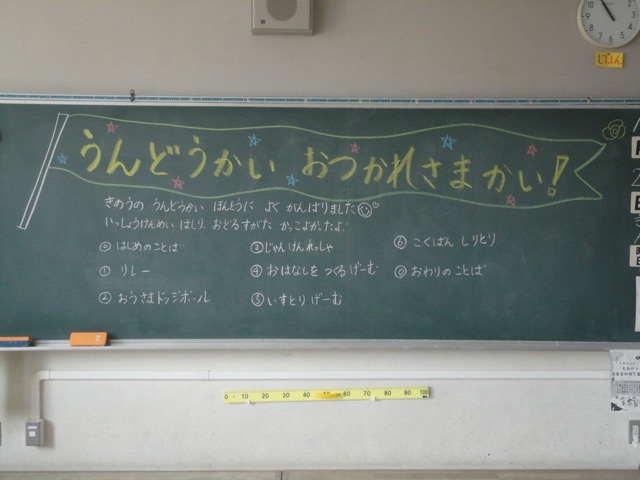 うんどうかい おつかれさまかい!
きのうの うんどうかい ほんとうに よく がんばりました
いっしょうけんめい はしり、おどるすがた かっこよかったよ!
⓪ はじめのことば
① リレー
② おうさまドッジボール
③ じゃんけんれっしゃ
④ おはなしを つくる げーむ
⑤ いすとりげーむ
⑥ こくばん しりとり
⓪ おわりのことば
0 10 20 30 40 50 60 70 80 90 100